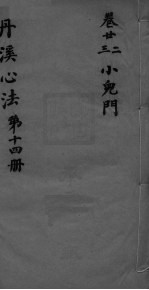 卷廿二三小兒門
丹溪心法第十四册